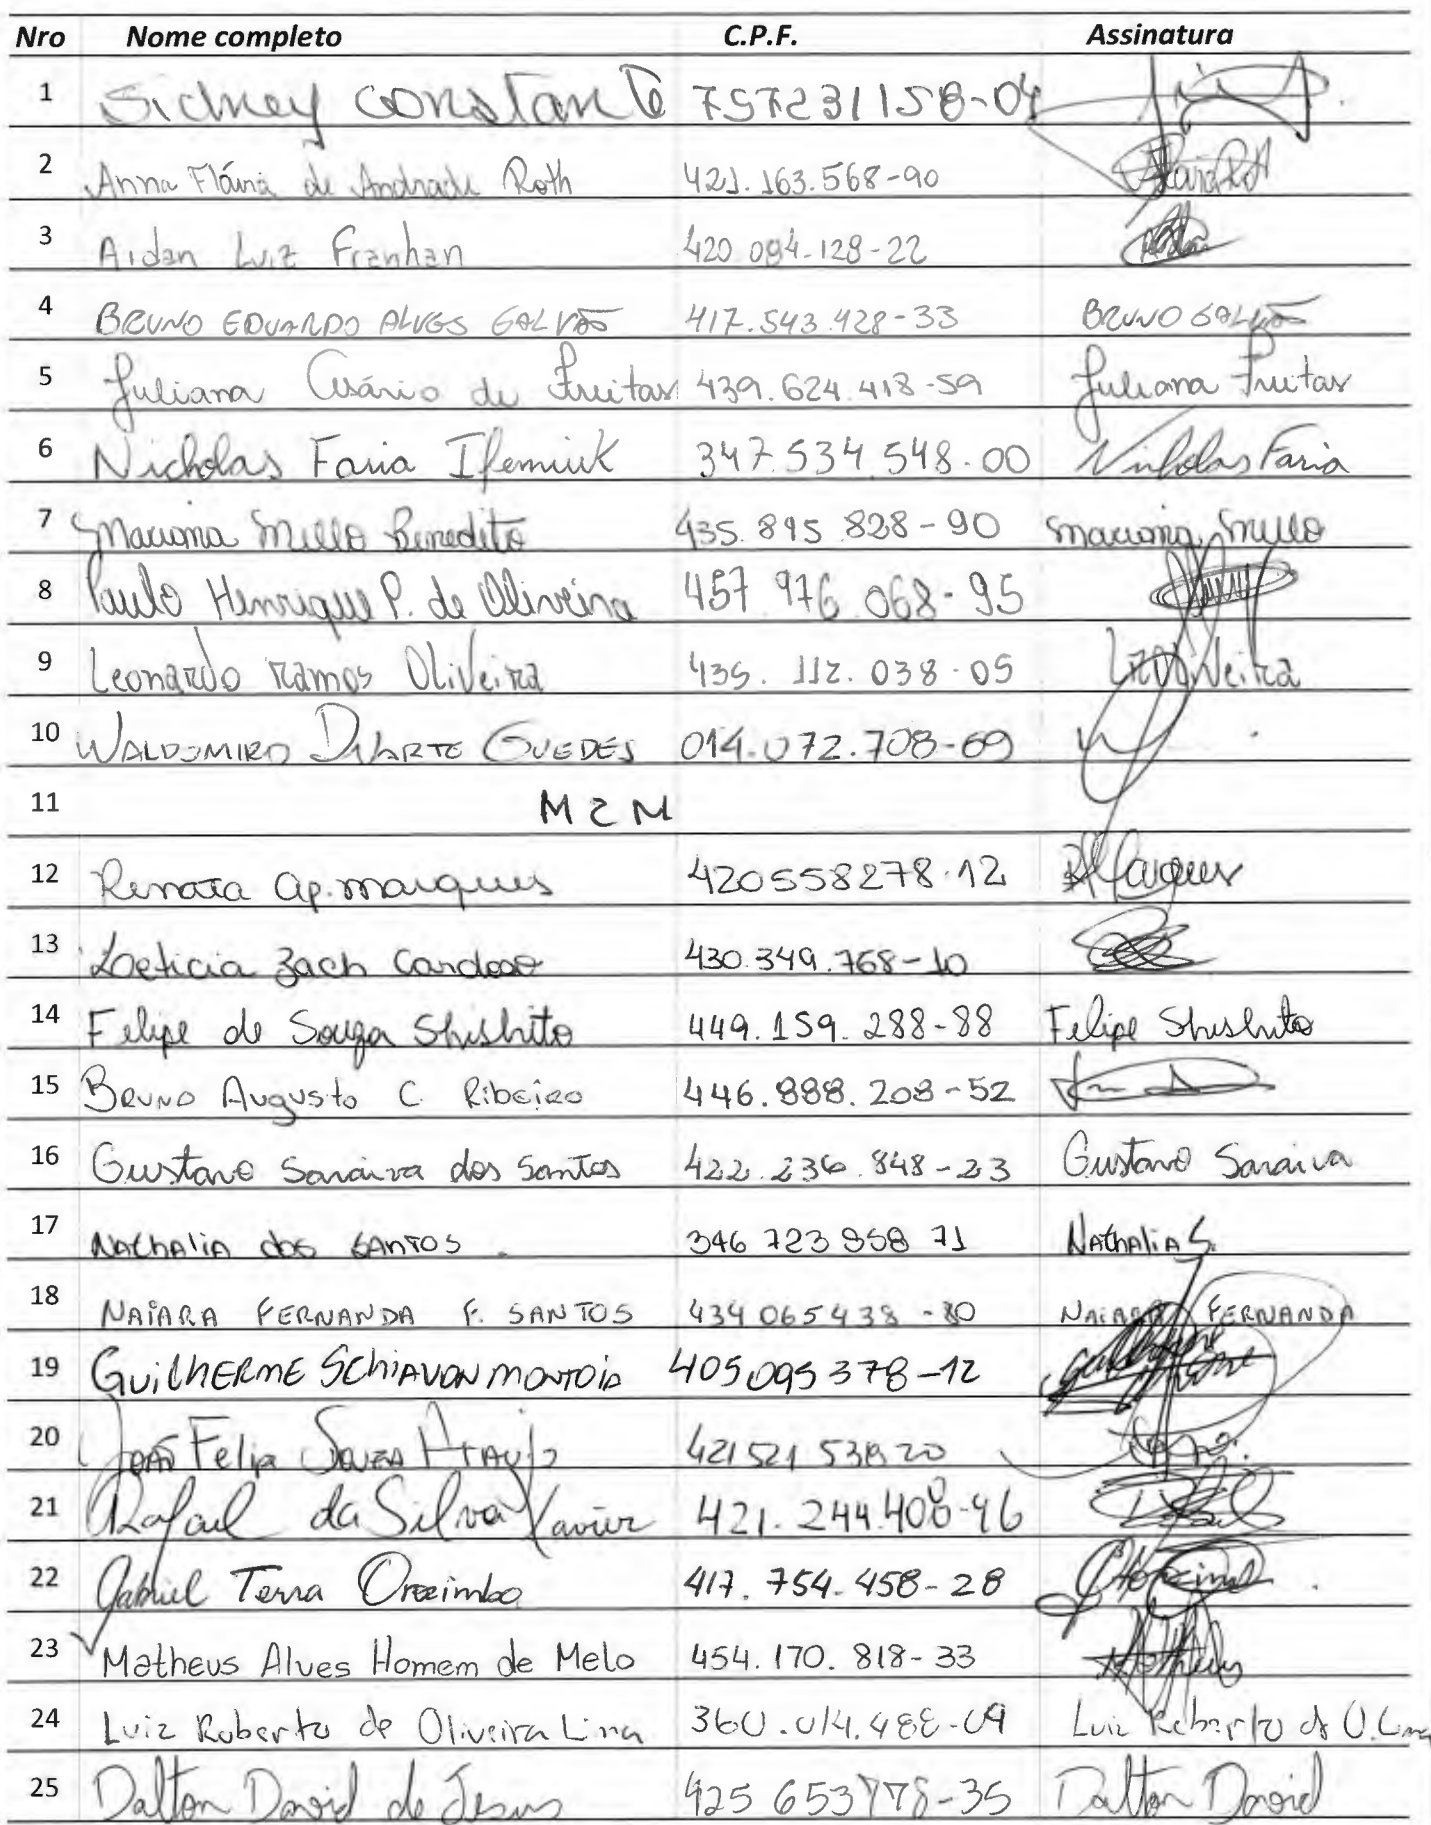 Nro Nome completo C.P.F. Assinatura
1 Sidney Constante 757231158-04
2 Anna Flávia de Andrade Roth 421.163.568-90 Flavia Roth
3 Aidan Luiz Franhan 420 084-128-22
4 BRUNO EDUARDO ALVES GALVÃO 417.543.428-33 BRUNO GALVÃO
5 Juliana Cesário de Freitas 439.624.418-59 Juliana Freitas
6 Nicholas Faria 347.534.548-00 Nicholas Faria
7 Mariana Mello Benedito 435.895.828-90 Mariana Mello
8 Paulo Henrique P. de Oliveira 457 976 068-95
9 Leonardo Ramos Oliveira 435. 112. 038-05
10 WALDOMIRO DUARTE GUEDES 014.072.708-69
11
12 Renata Ap. Marques 420558278-12 Marques
13 Leticia Zach Cardoso 430.349.768-10
14 Felipe de Souza Shishito 449.159.288-88 Felipe Shishito
15 Bruno Augusto C. Ribeiro 446.888.208-52
16 Gustavo Saraiva dos Santos 422.236.848-23 Gustavo Saraiva
17 Nathalia dos Santos 346 723 958 71 Nathalia S.
18 NAIARA FERNANDA F. SANTOS 434 065438-80 NAIARA FERNANDA
19 GUILHERME SCHIAVON 405095378-12
20 João Felip Souza Araujo 421521 538 20
21 Rafael da Silva Xavier 421.244.408-96
22 Gabriel Terra Orozimbo 417.754.458-28
23 Matheus Alves Homem de Melo 454.170.818-33 Matheus
24 Luiz Roberto de Oliveira Lima 360.014.488-09 Luiz Roberto de O. Lima
25 Dalton David de Jesus 425 653778-35 Dalton David